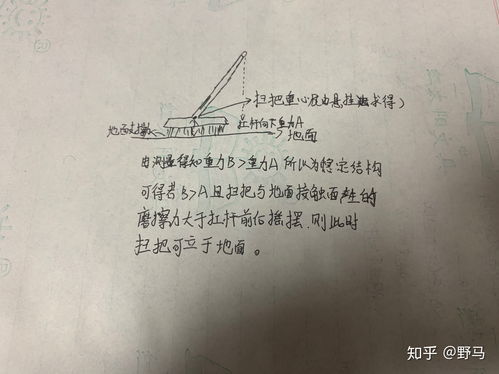 扫把重心B(由悬挂法求得)
杠杆向下重力A
地面支撑
地面
由测量得知重力B>重力A 所以为稳定结构
可得若B>A且扫把与地面接触面产生的
磨擦力大于扛杆前后摇摆,则此时
扫把可立于地面。
知乎 @野马